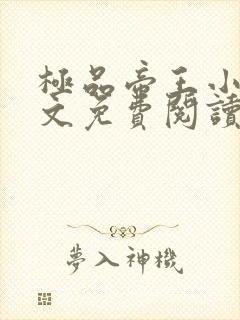 極品帝王小
文免費閱讀
夢入神機